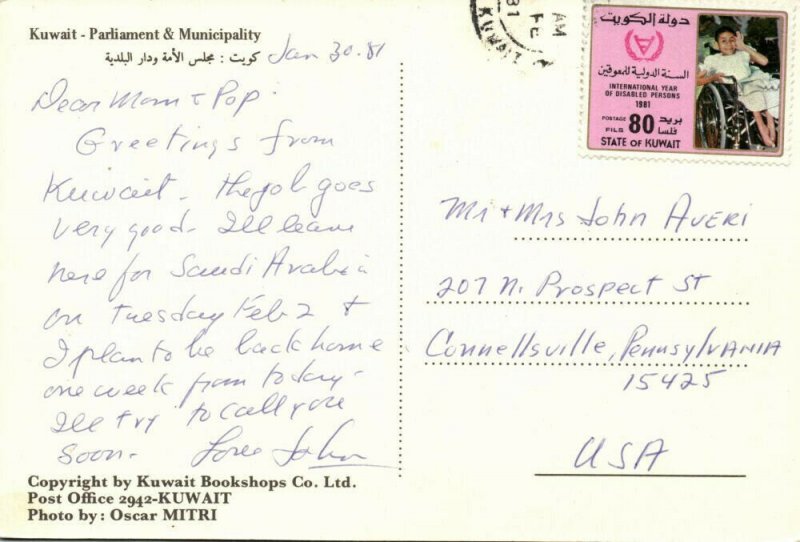 Kuwait - Parliament & Municipality
كويت : مجلس الأمة ودار البلدية
Jan 30. 81
Dear Mom & Pop.
Greetings from
Kuwait. The job goes
very good. I'll leave
here for Saudi Arabia
on Tuesday Feb 2 &
I plan to be back home
one week from today.
I'll try to call you
soon. Love John
Copyright by Kuwait Bookshops Co. Ltd.
Post Office 2942-KUWAIT
Photo by : Oscar MITRI
AM
FE
81
KUWAIT
دولة الكويت
السنة الدولية للمعوقين
INTERNATIONAL YEAR
OF DISABLED PERSONS
1981
POSTAGE 80 بريد
FILS فلسا
STATE OF KUWAIT
Mr & Mrs John Averi
207 N. Prospect St
Connellsville, Pennsylvania
15425
USA